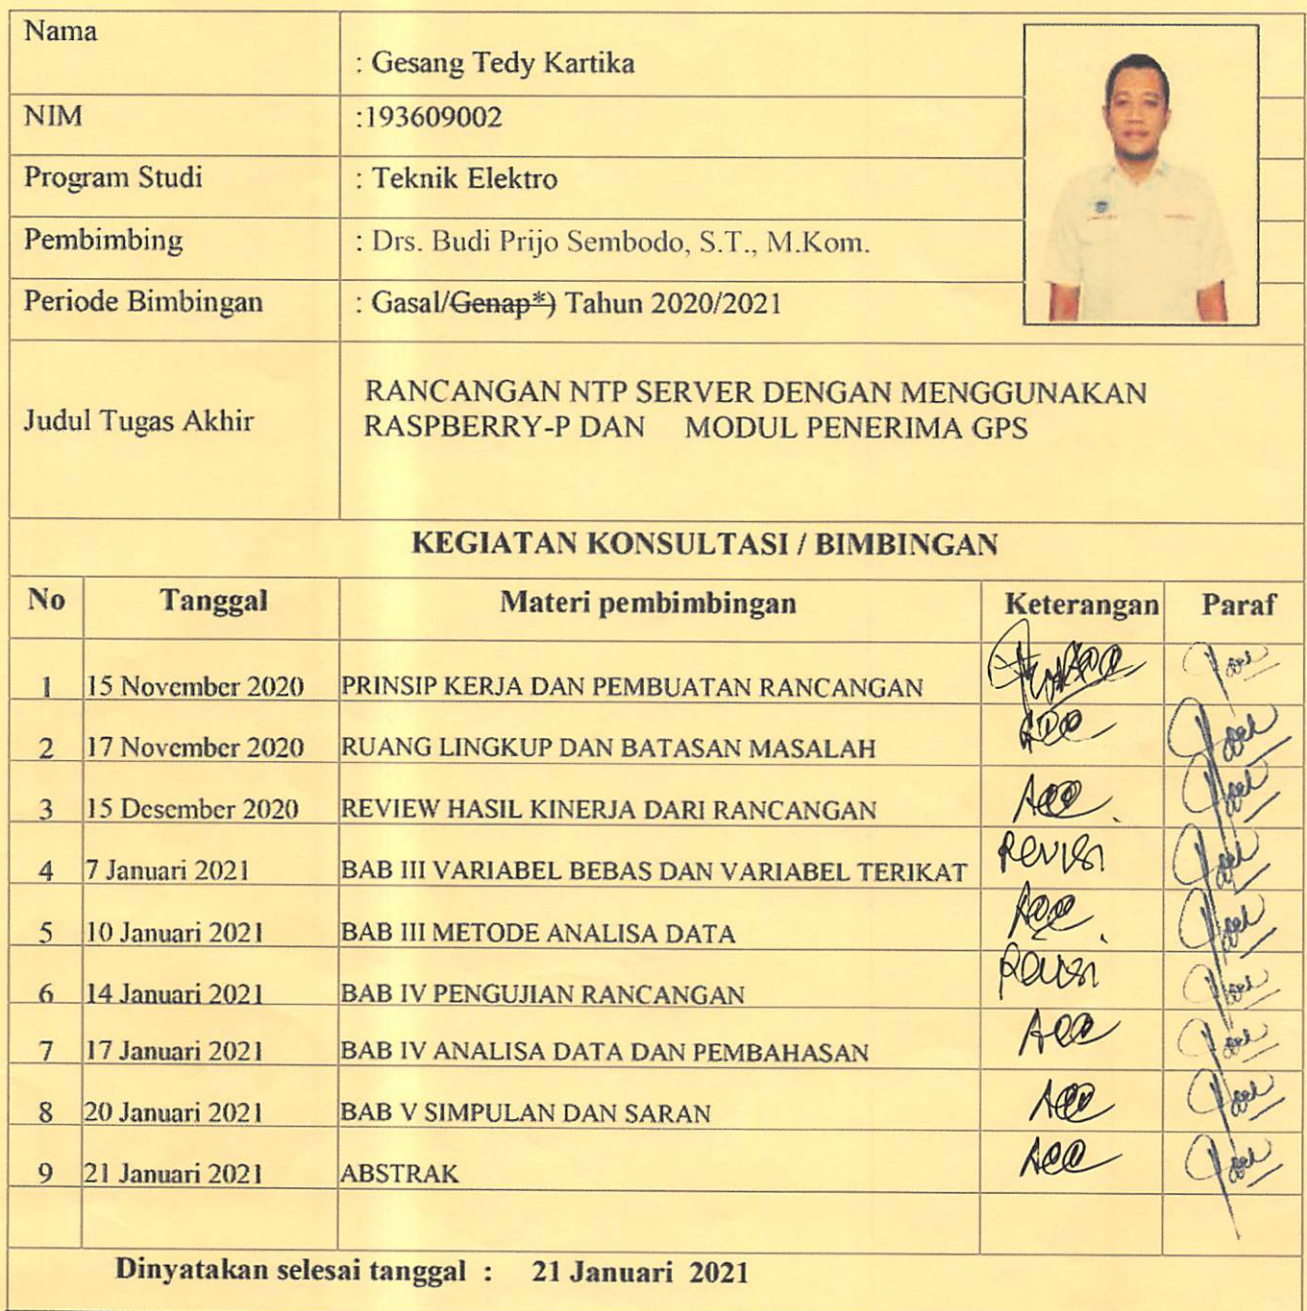 Nama
: Gesang Tedy Kartika
NIM :193609002
Program Studi : Teknik Elektro
Pembimbing : Drs. Budi Prijo Sembodo, S.T., M.Kom.
Periode Bimbingan : Gasal/Genap*) Tahun 2020/2021
Judul Tugas Akhir
RANCANGAN NTP SERVER DENGAN MENGGUNAKAN
RASPBERRY-P DAN MODUL PENERIMA GPS
KEGIATAN KONSULTASI / BIMBINGAN
No Tanggal Materi pembimbingan Keterangan Paraf
1 15 November 2020 PRINSIP KERJA DAN PEMBUATAN RANCANGAN
2 17 November 2020 RUANG LINGKUP DAN BATASAN MASALAH Acc
3 15 Desember 2020 REVIEW HASIL KINERJA DARI RANCANGAN Acc
4 7 Januari 2021 BAB III VARIABEL BEBAS DAN VARIABEL TERIKAT Revisi
5 10 Januari 2021 BAB III METODE ANALISA DATA Acc
6 14 Januari 2021 BAB IV PENGUJIAN RANCANGAN Revisi
7 17 Januari 2021 BAB IV ANALISA DATA DAN PEMBAHASAN Acc
8 20 Januari 2021 BAB V SIMPULAN DAN SARAN Acc
9 21 Januari 2021 ABSTRAK Acc
Dinyatakan selesai tanggal : 21 Januari 2021